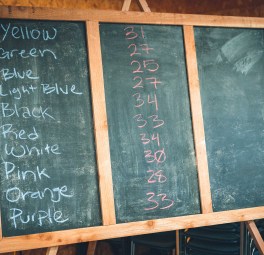 Yellow 31
Green 27
Blue 25
Light Blue 27
Black 34
Red 33
White 34
Pink 30
Orange 28
Purple 33